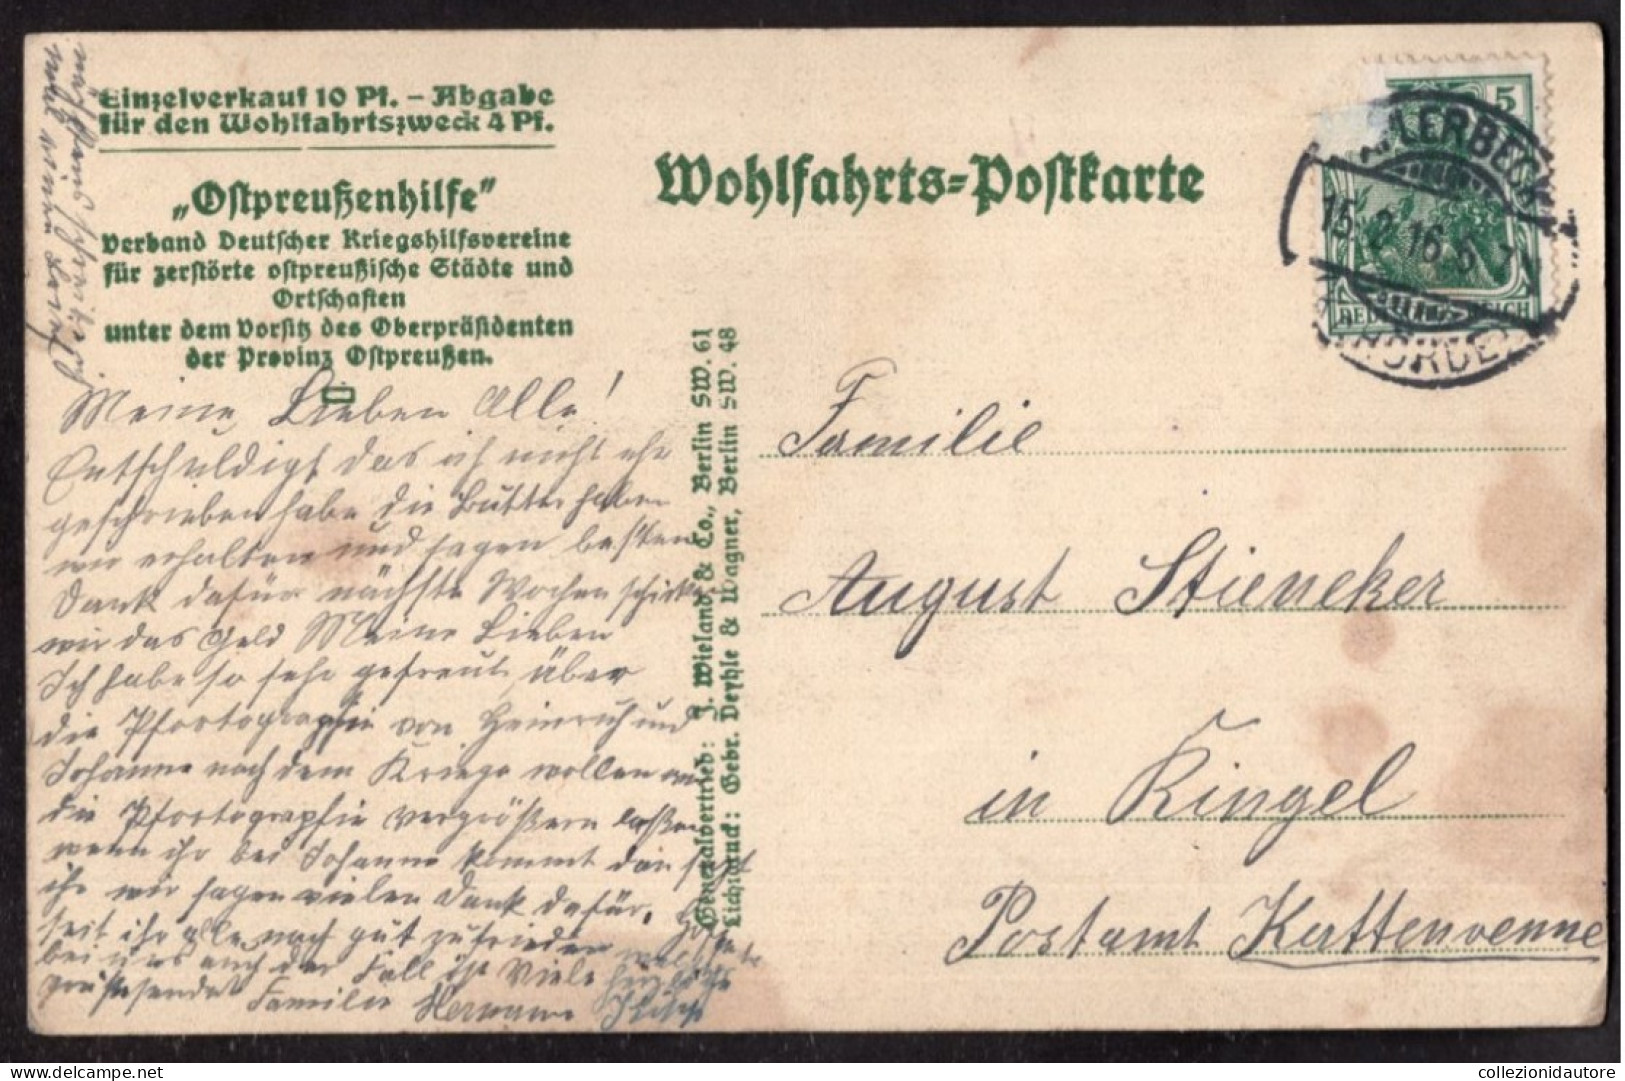 Einzelverkauf 10 Pf. – Abgabe
für den Wohlfahrtszweck 4 Pf.
„Ostpreußenhilfe"
Verband Deutscher Kriegshilfsvereine
für zerstörte ostpreußische Städte und
Ortschaften
unter dem Vorsitz des Oberpräsidenten
der Provinz Ostpreußen.
Wohlfahrts-Postkarte
5
DEUTSCHES REICH
APLERBECK
15. 2. 16. 6-7
HÖRDE
Meine Lieben Alle!
Entschuldigt das ich nicht ehr
geschrieben habe die Butter haben
wir erhalten und sagen besten
Dank dafür nächste Wochen schicken
wir das Geld Meine Lieben
Ich habe so sehr gefreut über
die Pfortographie von Heinrich und
Johanne nach dem Kriege wollen wir
die Pfortographie vergrößern laßen
wenn ihr bei Johanne kommt dan sagt
ihr wir sagen vielen Dank dafür.
seit ihr alle noch gut zufrieden
bei uns auch der Fall ist Viele herzliche
Grüße sendet Familie Hermann
Generalvertrieb: J. Wieland & Co., Berlin SW. 61
Lichtdruck: Gebr. Deyhle & Wagner, Berlin SW. 48
Familie
August Stieneker
in Ringel
Postamt Kattenvenne
collezionidautore